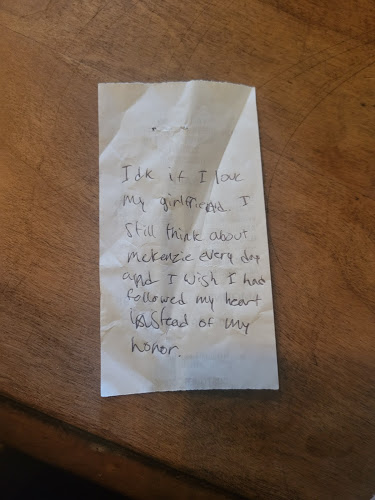 Idk if I love
my girlfriend. I
still think about
mckenzie every day
and I wish I had
followed my heart
instead of my
honor.